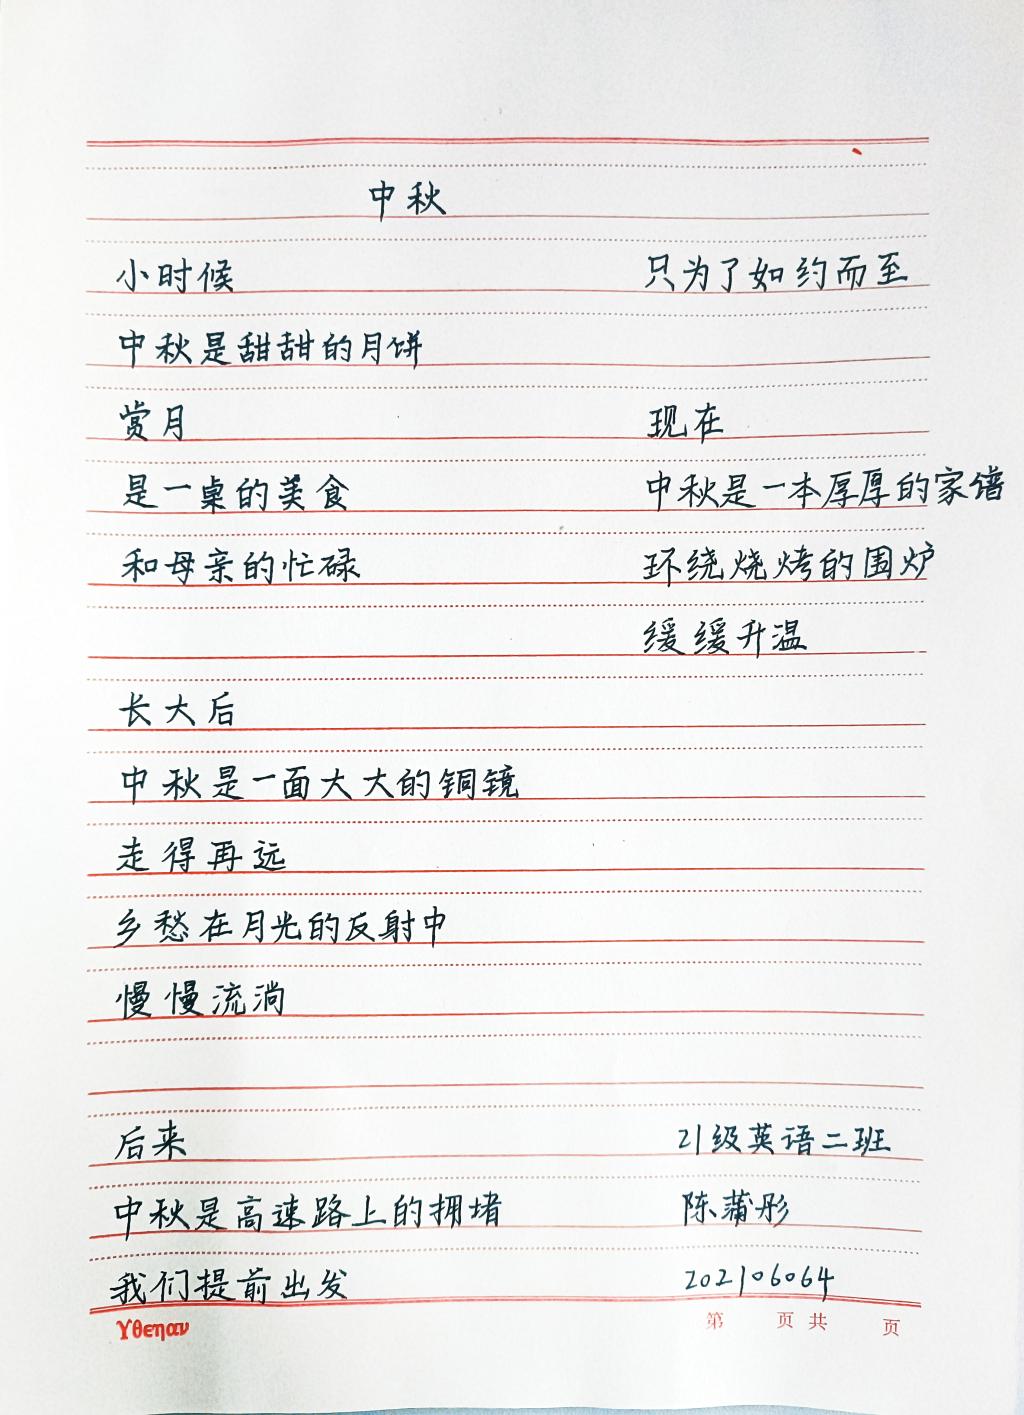 中秋
小时候
中秋是甜甜的月饼
赏月
是一桌的美食
和母亲的忙碌
长大后
中秋是一面大大的铜镜
走得再远
乡愁在月光的反射中
慢慢流淌
后来
中秋是高速路上的拥堵
我们提前出发
只为了如约而至
现在
中秋是一本厚厚的家谱
环绕烧烤的围炉
缓缓升温
21级英语二班
陈蒲彤
202106064
ϒθεηαν
第 页 共 页